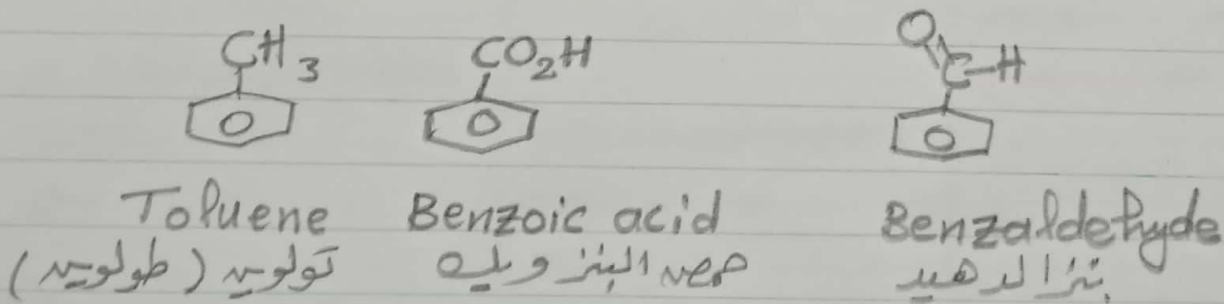 CH3 CO2H O C-H
Toluene Benzoic acid Benzaldehyde
تولوين (طولوين) حمض البنزويك بنزالدهيد